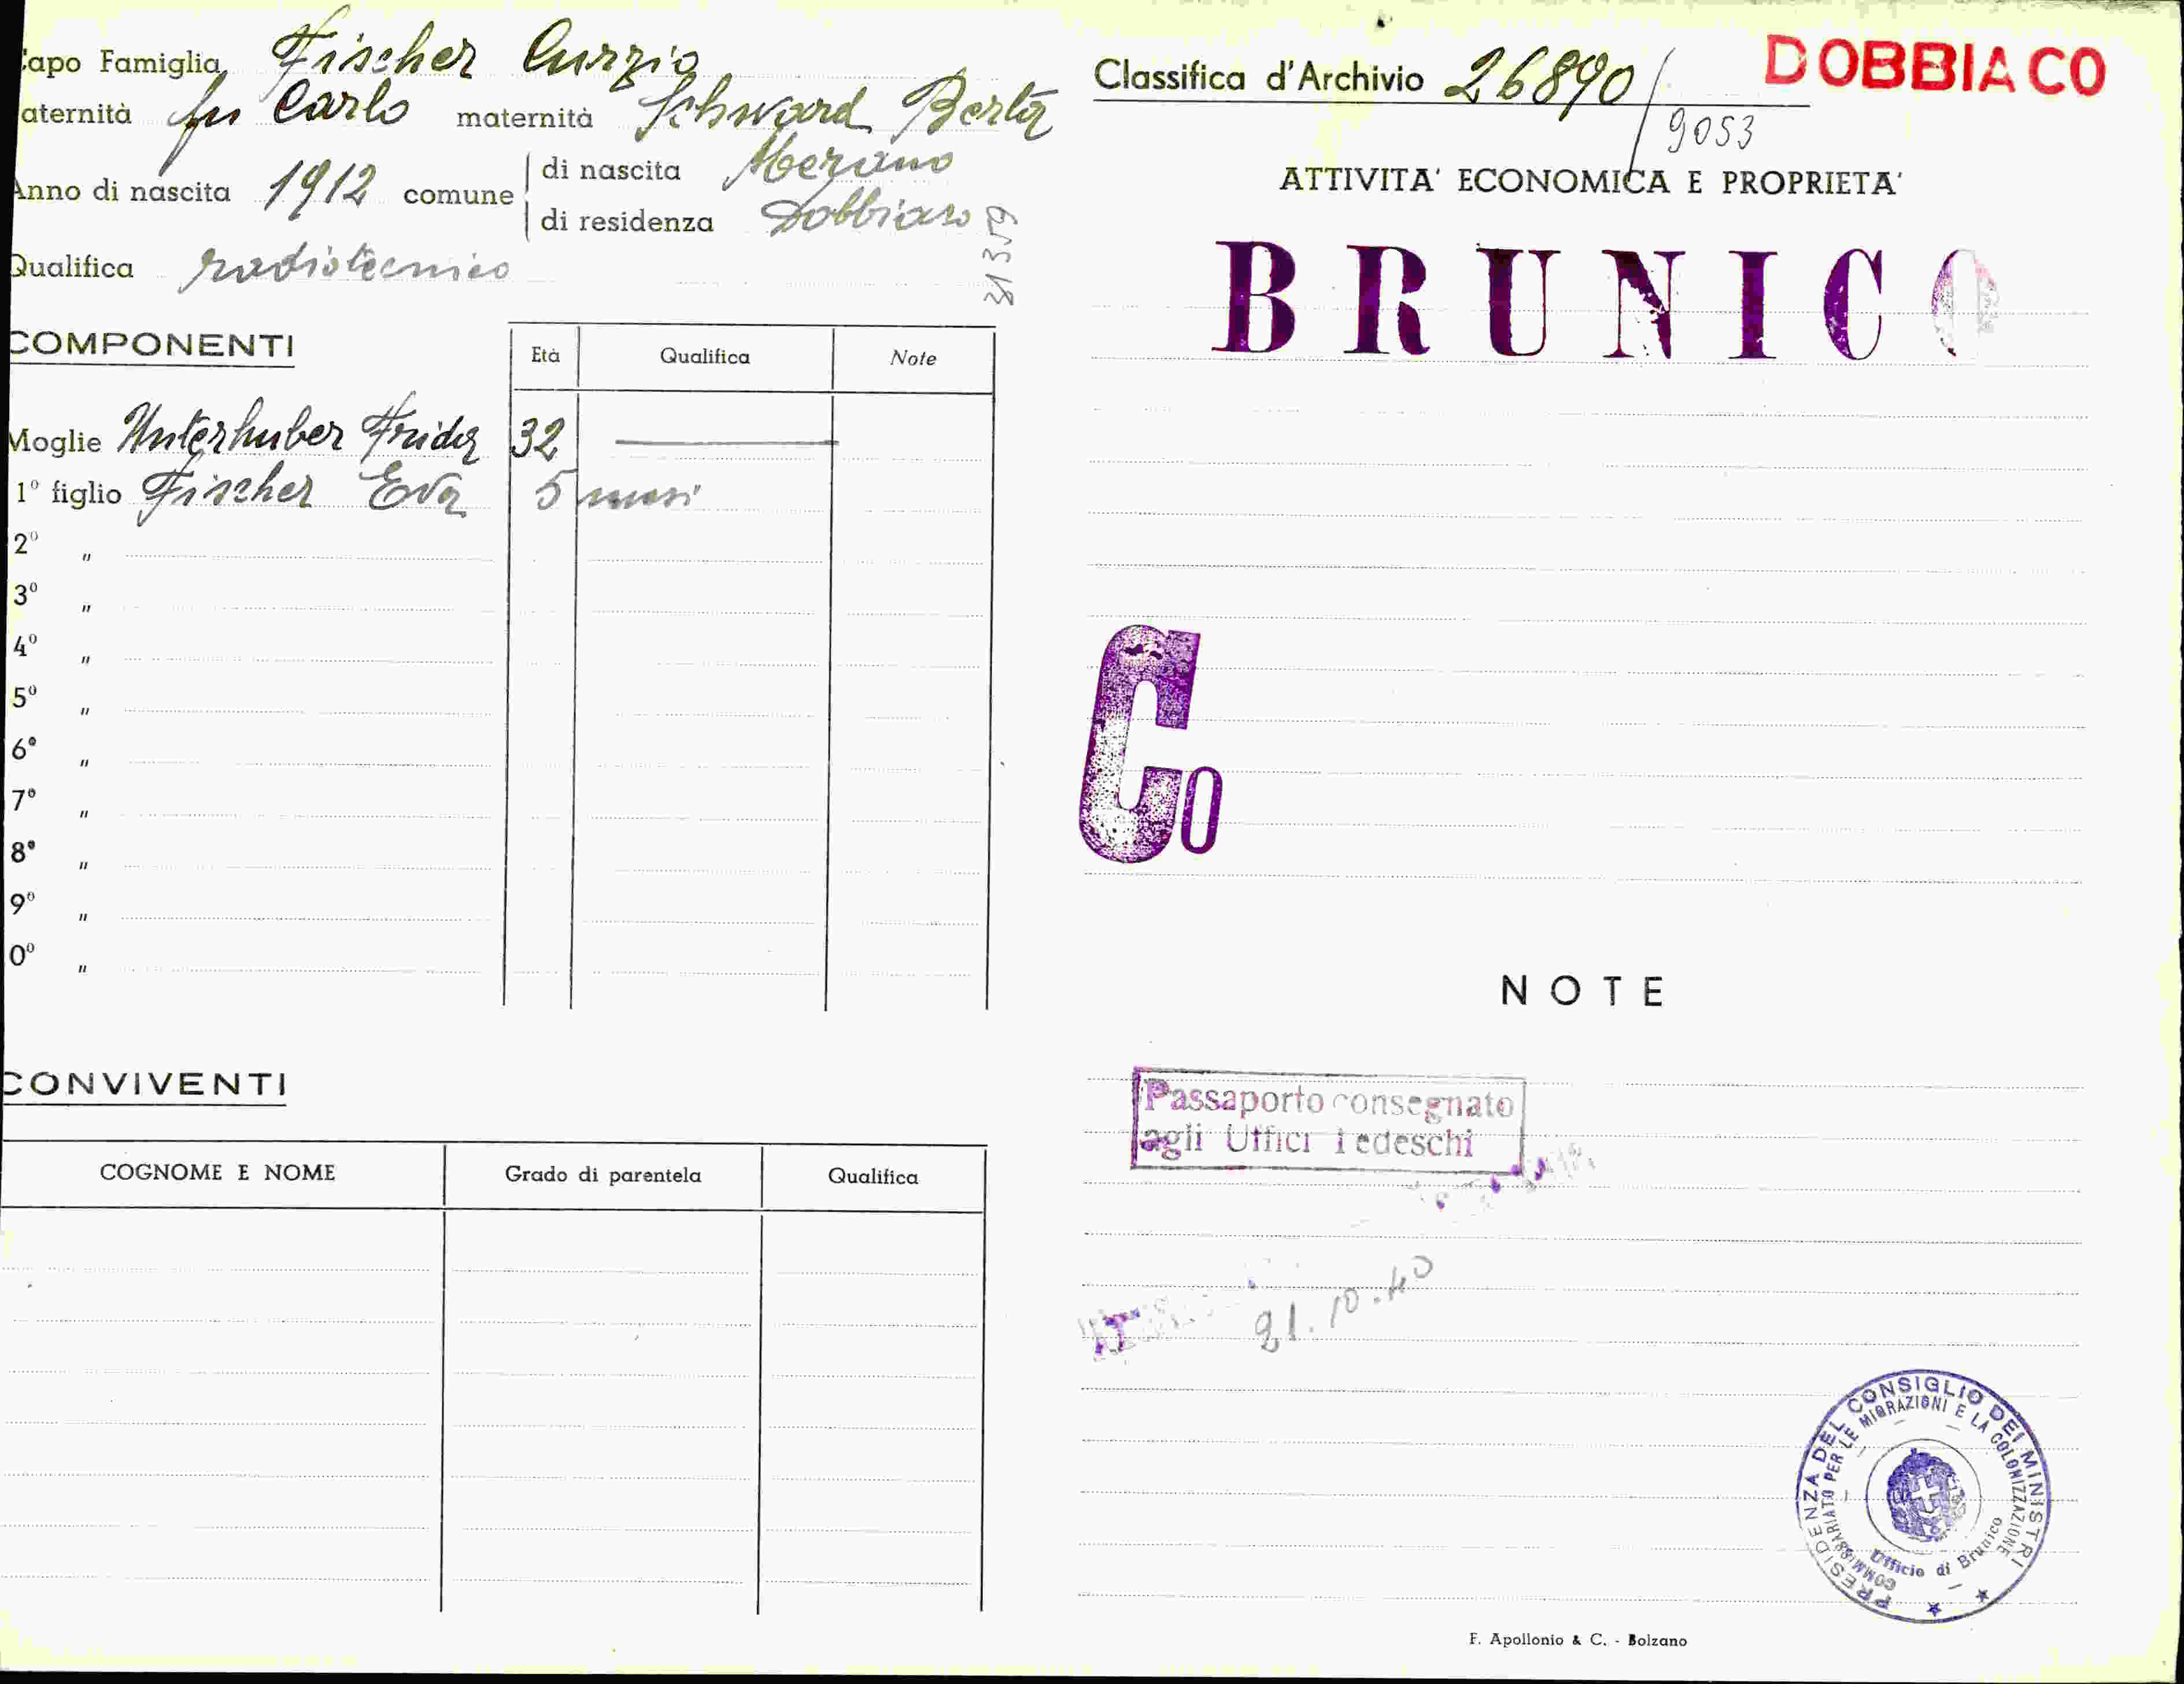 Capo Famiglia Fischer Curzio
aternità fu Carlo maternità Schward Berta
Anno di nascita 1912 comune di nascita Merano
di residenza Dobbiaco
31359
Qualifica radiotecnico
COMPONENTI
Età Qualifica Note
Moglie Unterhuber Frida 32
1° figlio Fischer Eva 5 mesi
2° "
3° "
4° "
5° "
6° "
7° "
8° "
9° "
0° "
CONVIVENTI
COGNOME E NOME Grado di parentela Qualifica
Classifica d'Archivio 26890/
9053
DOBBIACO
ATTIVITA' ECONOMICA E PROPRIETA'
BRUNICO
Co
NOTE
Passaporto consegnato
agli Uffici Tedeschi
21.10.40
PRESIDENZA DEL CONSIGLIO DEI MINISTRI
COMMISSARIATO PER LE MIGRAZIONI E LA COLONIZZAZIONE
Ufficio di Brunico
F. Apollonio & C. - Bolzano